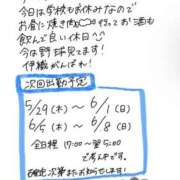 今日は学校もお休みなので
お昼に焼き肉行ってお酒も
飲んで良い休日
今は野球見てます！
伊織がんばれ！
次回出勤予定
5/29(木)〜6/1(日)
6/5(木)〜6/8(日)
全日程 17:00〜翌5:00
で考え中です。
確定次第またお知らせします！